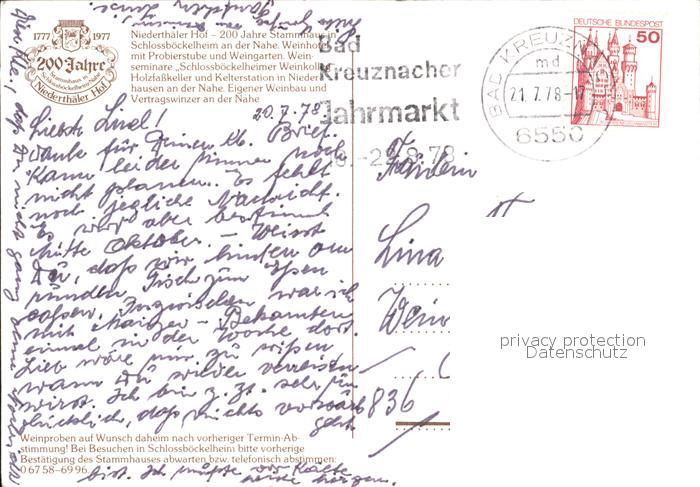 1777 1977
200 Jahre
Stammhaus in
Schlossböckelheim
Niederthäler Hof
Niederthäler Hof – 200 Jahre Stammhaus in
Schlossböckelheim an der Nahe. Weinhotel
mit Probierstube und Weingarten. Wein-
seminare „Schlossböckelheimer Weinkolleg"
Holzfaßkeller und Kelterstation in Nieder-
hausen an der Nahe. Eigener Weinbau und
Vertragswinzer an der Nahe
Bad
Kreuznacher
Jahrmarkt
-2 .8.78
BAD KREUZNACH
md
21.7.78-17
6550
DEUTSCHE BUNDESPOST
50
20.7.78
Liebste Lina!
danke für Deinen lb. Brief.
Kann leider immer noch
nicht planen. Es fehlt
noch jegliche Nachricht.
Es wird aber bestimmt
Mitte Oktober – Weisst
Du, daß wir hinten am
runden Tisch zum Essen
saßen. Inzwischen war ich
mit Mainzer – Bekannten
einmal in der Woche dort.
Lieb wäre mir zu wissen
wann Du wieder verreisen
wirst. Ich bin z. Zt. sehr un-
glücklich, daß nichts vorwärts
geht
Fräulein
Lina
Wein
836
privacy protection
Datenschutz
Weinproben auf Wunsch daheim nach vorheriger Termin-Ab-
stimmung! Bei Besuchen in Schlossböckelheim bitte vorherige
Bestätigung des Stammhauses abwarten bzw. telefonisch abstimmen:
0 67 58-69 96.
bist. Ich müßte vor Kälte